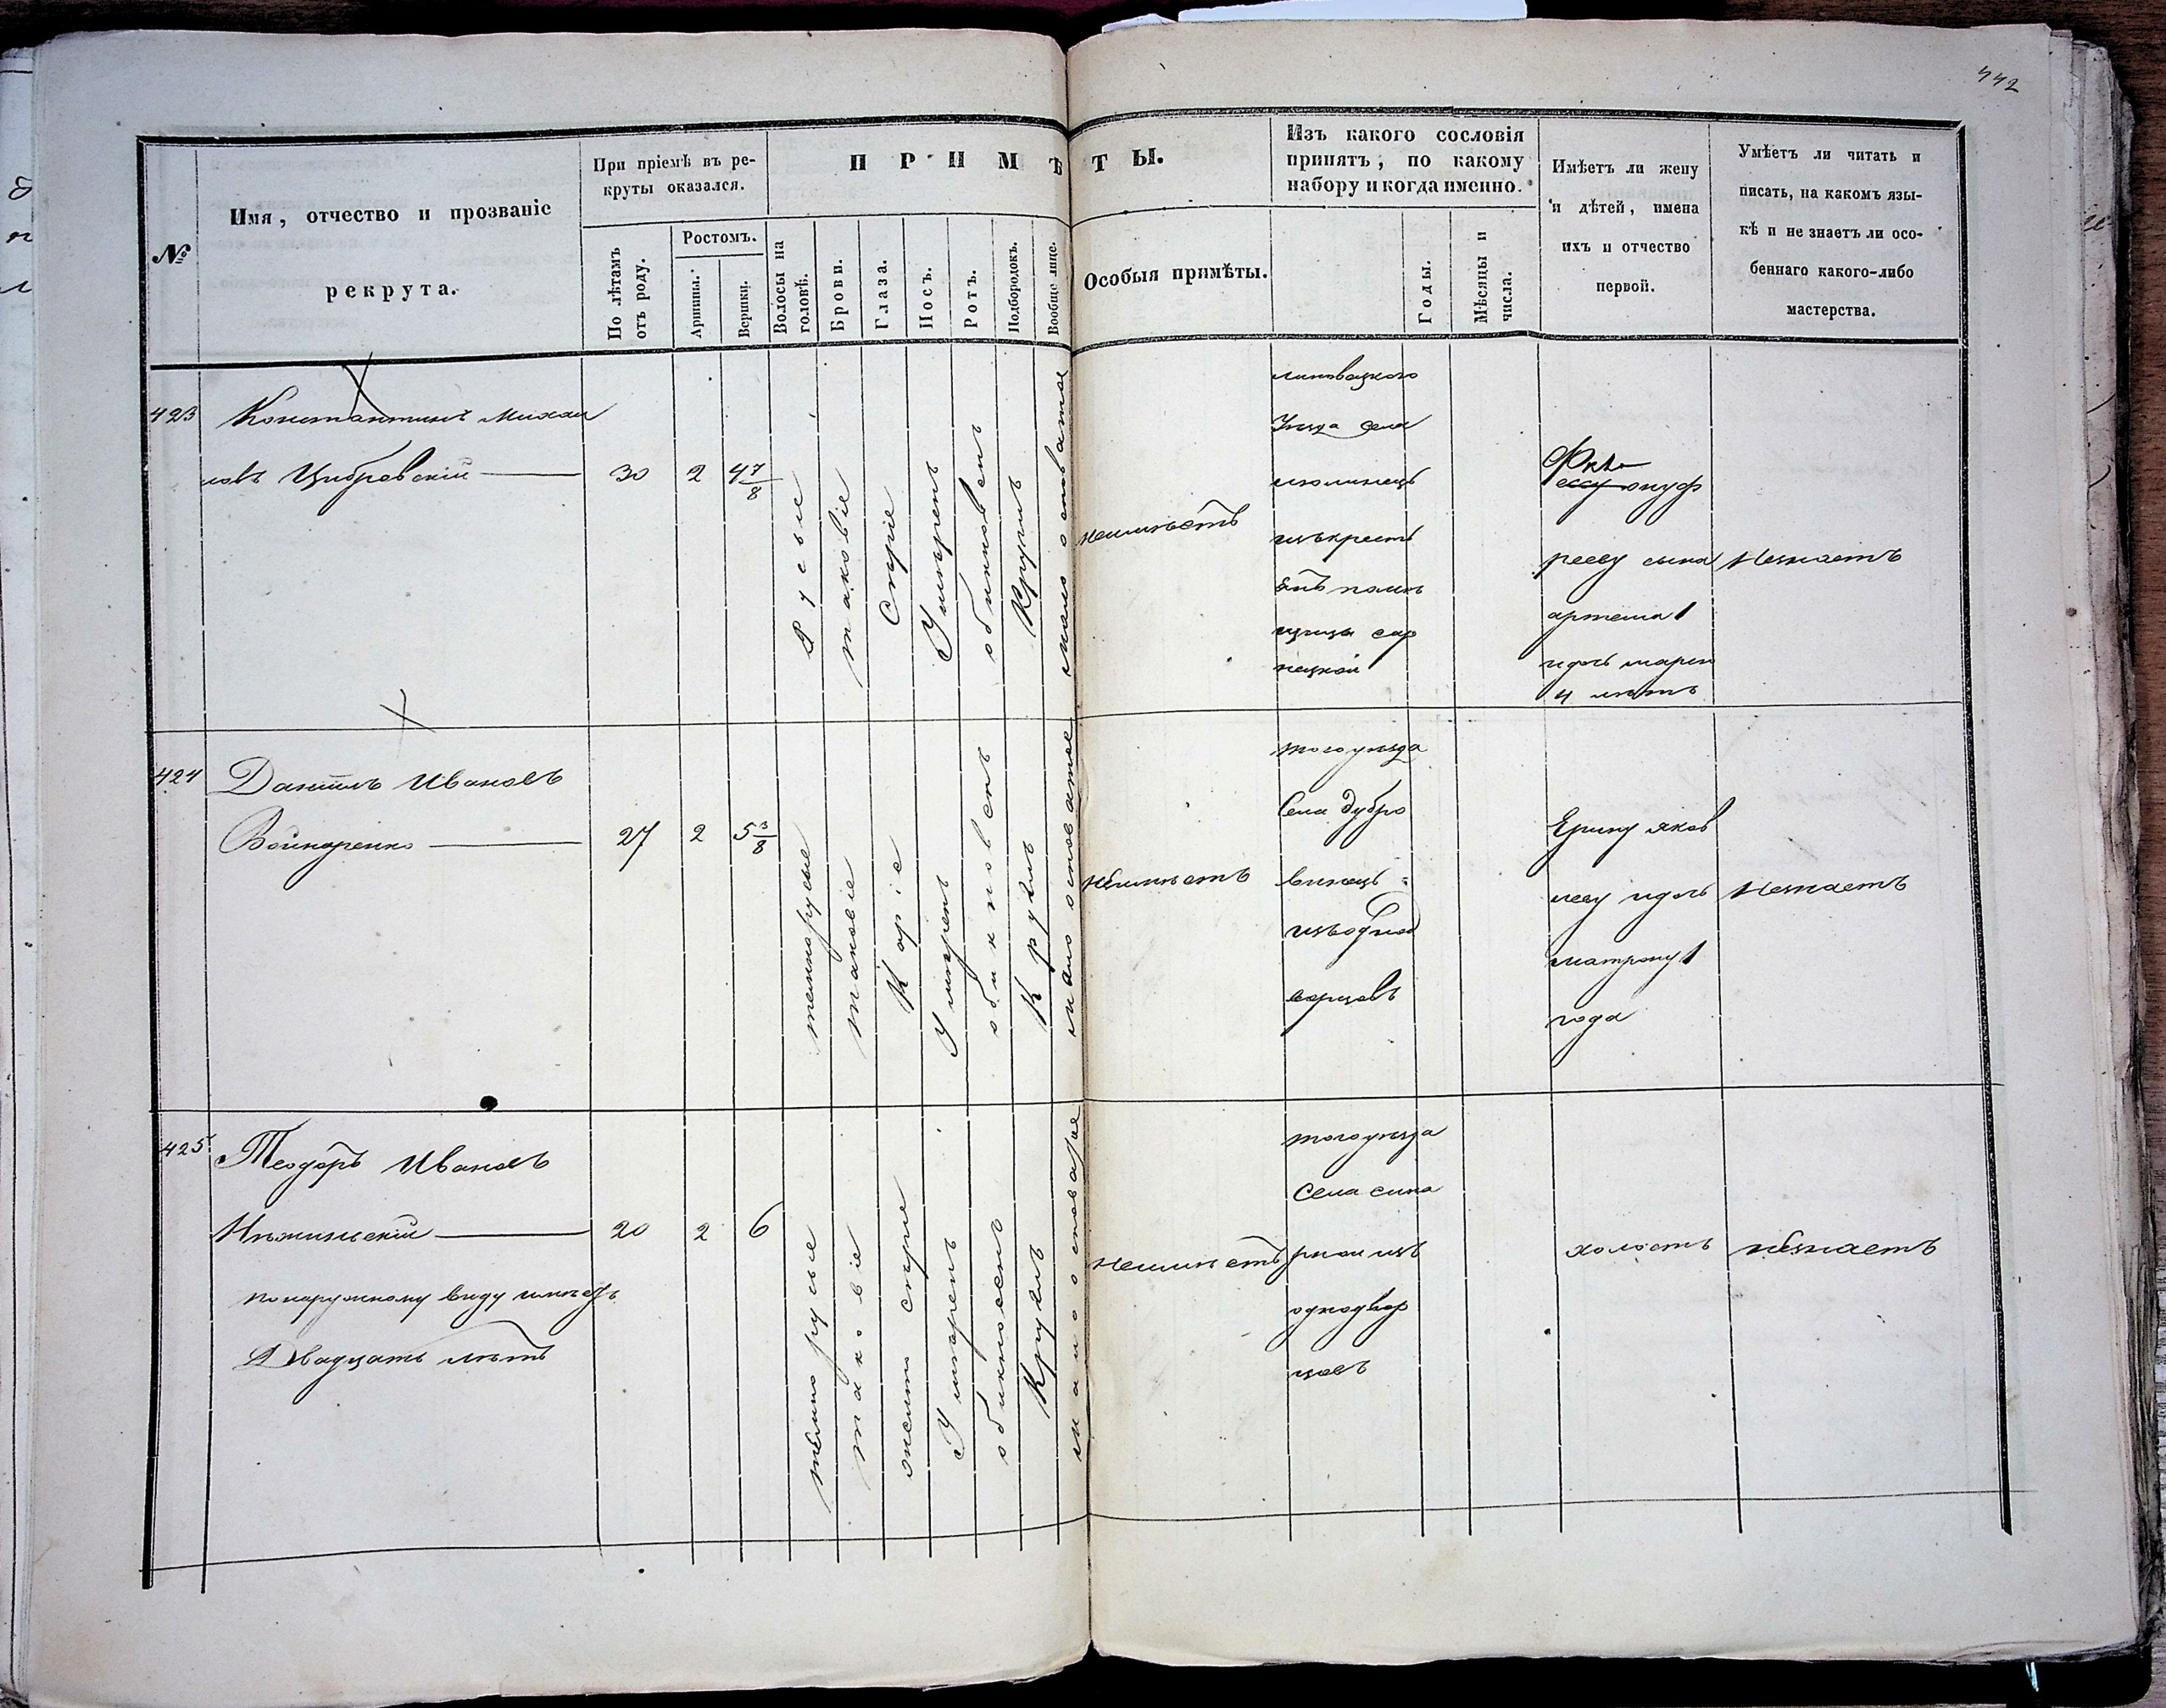 442
№
Имя, отчество и прозваніе
рекрута.
При пріемѣ въ ре-
круты оказался.
По лѣтамъ
отъ роду.
Ростомъ.
Аршины.
Вершки.
ПРИМѢТЫ.
Волосы на
головѣ.
Брови.
Глаза.
Носъ.
Ротъ.
Подбородокъ.
Вообще лице.
Особыя примѣты.
Изъ какого сословія
принятъ, по какому
набору и когда именно.
Годы.
Мѣсяцы и
числа.
Имѣетъ ли жену
и дѣтей, имена
ихъ и отчество
первой.
Умѣетъ ли читать и
писать, на какомъ язы-
кѣ и не знаетъ ли осо-
беннаго какого-либо
мастерства.
423
Константинъ Михаи
ловъ Цибровскій
30
2
4 7/8
Русые
таковіе
Сѣріе
Умѣренъ
обикновенъ
Круглъ
мало осповатое
неимѣетъ
уѣзда села
изъ крестъ
янъ помѣ
щицы
рееву сына
артема 1
идочь марію
4 лѣтъ
Незнаетъ
424
Даніилъ Ивановъ
Войнаренко
27
2
5 3/8
темнорусые
таковіе
Каріе
Умѣренъ
обикновенъ
Круглъ
мало осповатое
неимѣетъ
того уѣзда
Села Дубро
винець
изъ однод
ворцовъ
Ерину яков
леву идочь
матрону 1
года
Незнаетъ
425
Теодоръ Ивановъ
Нѣжинскій
понаружному виду имѣетъ
Двадцать лѣтъ
20
2
6
темнорусые
таковіе
желто сѣріе
Умѣренъ
обикновенъ
Круглъ
мало осповатое
неимѣетъ
того уѣзда
Села сина
рнои изъ
однодвор
цовъ
холостъ
незнаетъ